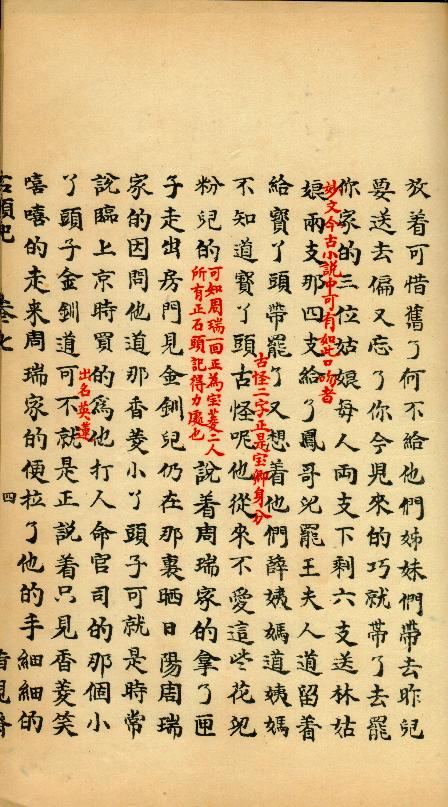 放着可惜舊了何不給他們姊妹們帶去昨兒
要送去偏又忘了你今兒來的巧就帶了去罷
你家的三位姑娘每人兩支下剩六支送林姑
妙文今古小說中可有如此口吻者
娘兩支那四支給了鳳哥兒罷王夫人道留着
給寶丫頭帶罷了又想着他們薛姨媽道姨媽
古怪二字正是宝卿身分
不知道寶丫頭古怪呢他從來不愛這些花兒
粉兒的
可知周瑞一回正為宝菱二人
所有正石頭記得力處也
說着周瑞家的拿了匣
子走出房門見金釧兒仍在那裏晒日陽周瑞
家的因問他道那香菱小丫頭子可就是時常
說臨上京時買的為他打人命官司的那個小
丫頭子金釧道可不就是正說着只見香菱笑
出名英蓮
嘻嘻的走来周瑞家的便拉了他的手細細的
石頭記 卷七 四